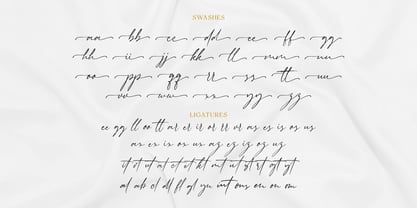 SWASHES
aa bb cc dd ee ff gg
hh ii jj kk ll mm nn
oo pp qq rr ss tt uu
vv ww xx yy zz
LIGATURES
ee gg ll oo tt ar er ir or rr vr as es is os us
ax ex ix ox ux az ez iz oz ug
it st ut at ct kt mt ut yt rt qt yt
al ab cl dl fl gl yn ons en on om